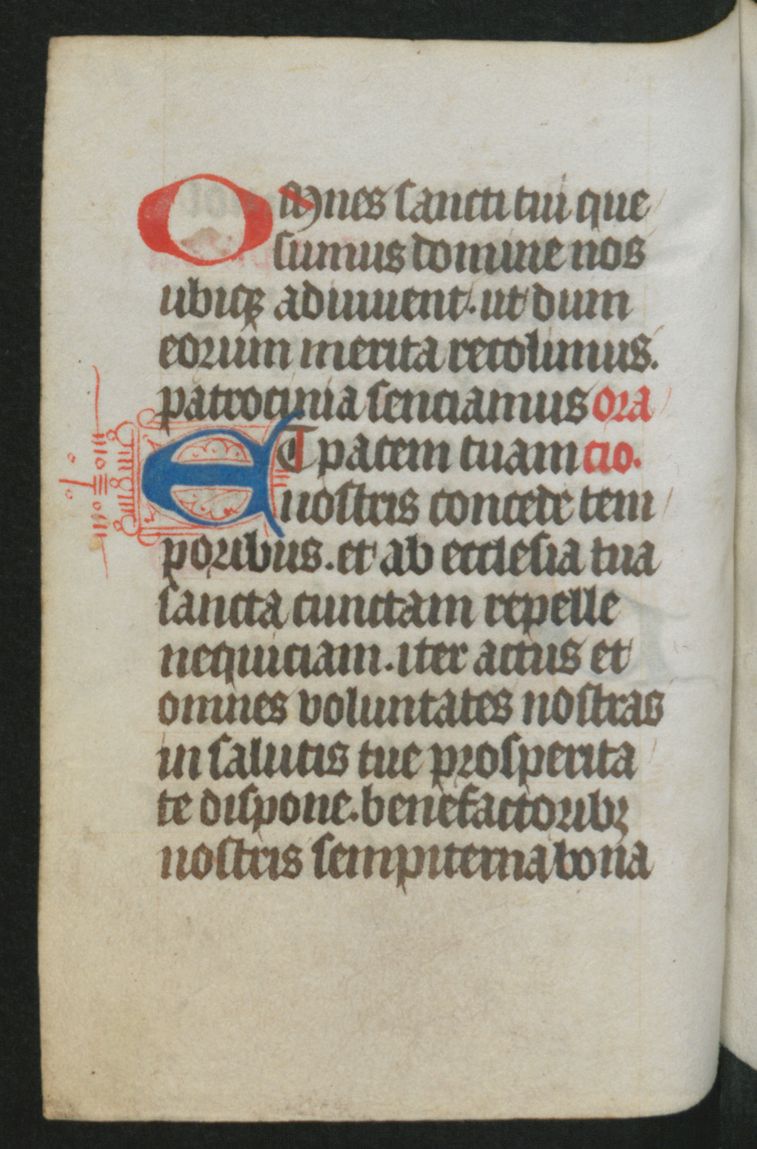 Omnes sancti tui que
sumus domine nos
ubiqꝫ adiuuent. ut dum
eorum merita recolimus.
patrocinia senciamus Ora
ET pacem tuam cio.
nostris concede tem
poribus. et ab ecclesia tua
sancta cunctam repelle
nequiciam. iter actus et
omnes voluntates nostras
in salutis tue prosperita
te dispone. benefactoribꝫ
nostris sempiterna bona